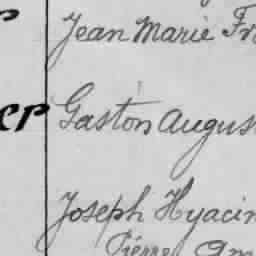 Jean Marie Fr
er Gaston Augus
Joseph Hyacin
Pierre Am